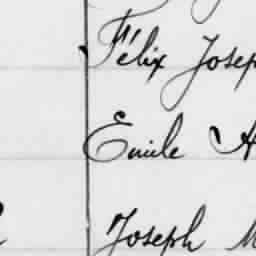 Félix Josep
Emile A
Joseph M